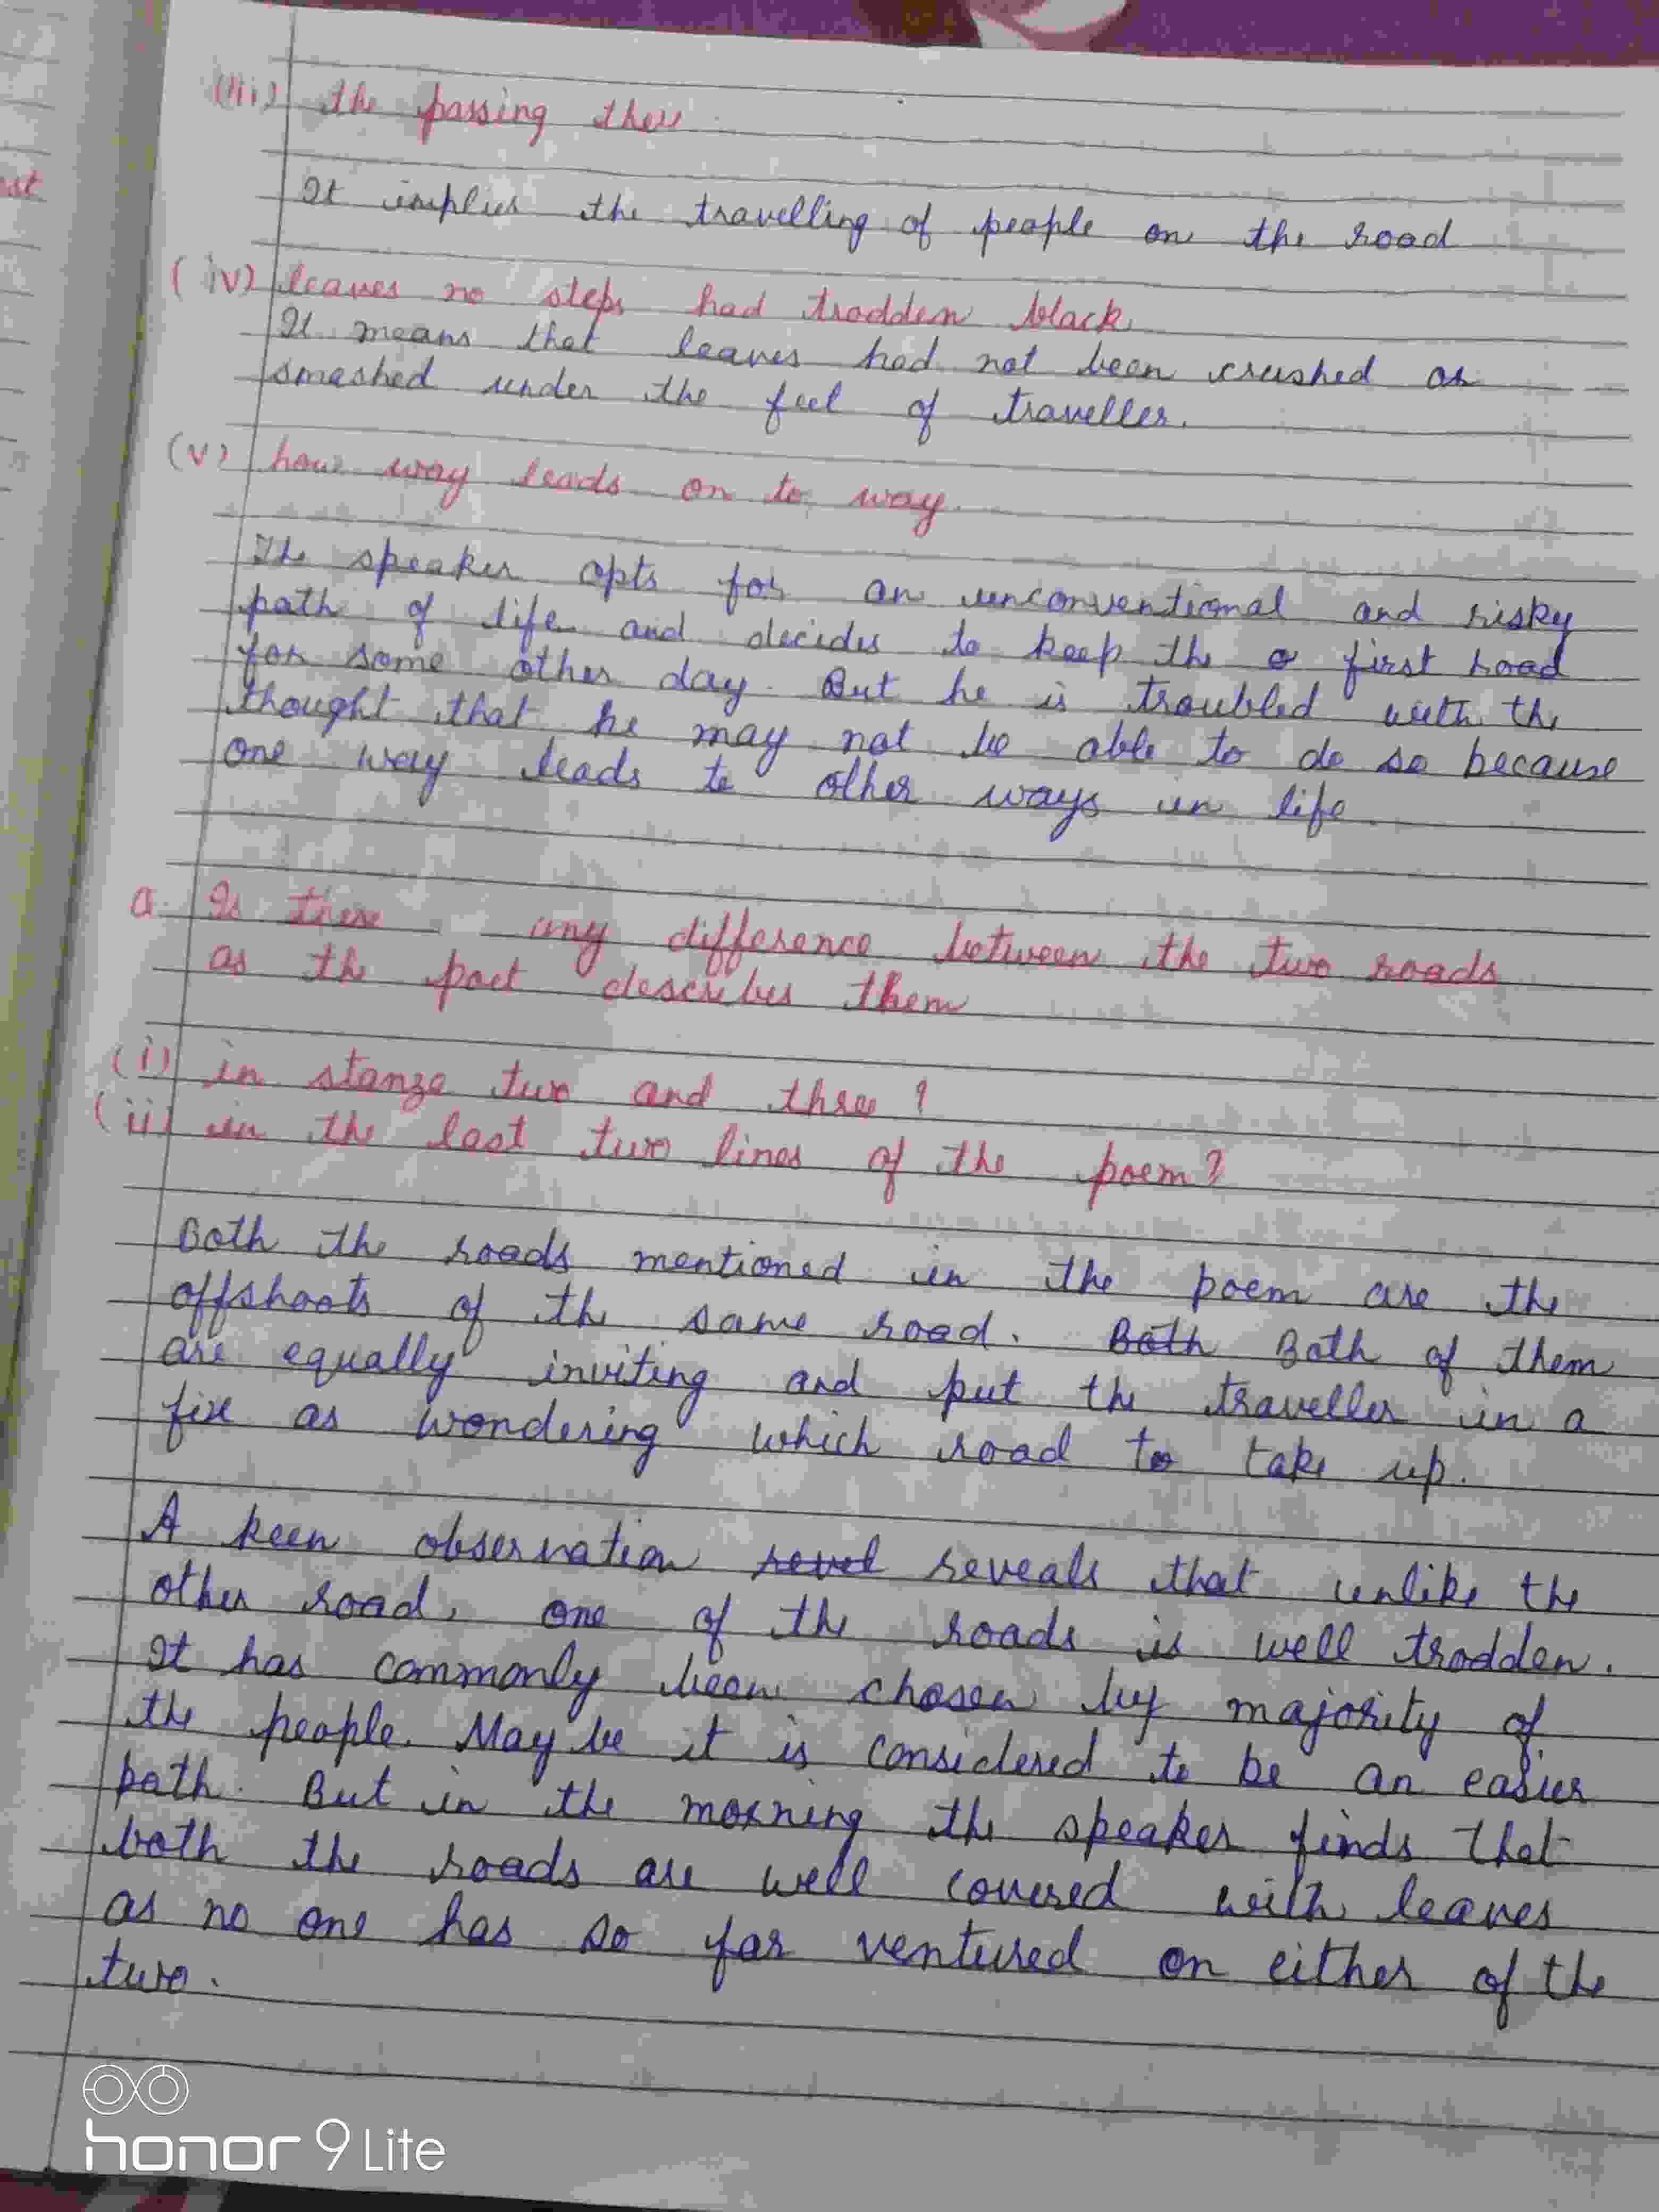 st
(iii) the passing there
It implies the travelling of people on the road
(iv) leaves no steps had trodden black.
It means that leaves had not been crushed or
smashed under the feet of traveller.
(v) how way leads on to way.
The speaker opts for an unconventional and risky
path of life and decides to keep the first road
for some other day. But he is troubled with the
thought that he may not be able to do so because
one way leads to other ways in life.
Q Is there any difference between the two roads
as the poet describes them
(i) in stanza two and three?
(ii) in the last two lines of the poem?
Both the roads mentioned in the poem are the
offshoots of the same road. Both Both of them
are equally inviting and put the traveller in a
fix as wondering which road to take up.
A keen observation revel reveals that unlike the
other road, one of the roads is well trodden.
It has commonly been chosen by majority of
the people. May be it is considered to be an easier
path. But in the morning the speaker finds that
both the roads are well covered with leaves
as no one has so far ventured on either of the
two.
honor 9 Lite